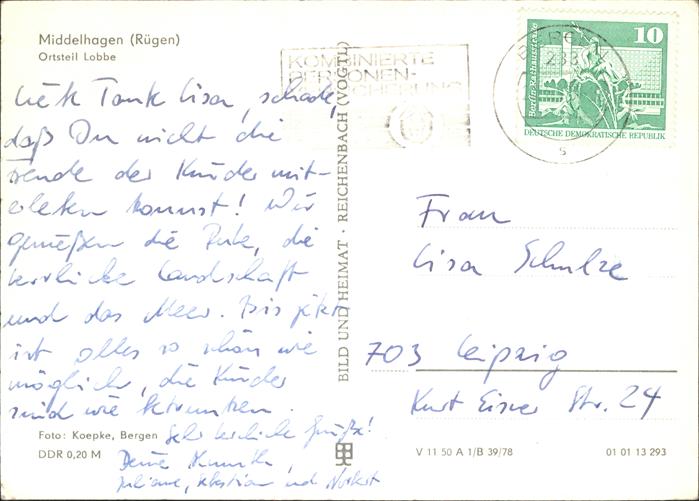 Middelhagen (Rügen)
Ortsteil Lobbe
Liebe Tante Lisa, schade,
daß Du nicht die
Freude der Kinder mit-
erleben kannst! Wir
genießen die Ruhe, die
herrliche Landschaft
und das Meer. Bis jetzt
ist alles so schön wie
möglich, die Kinder
sind wie betrunken.
Sehr herzliche Grüße!
Deine
Juliane, Sebastian und Norbert
Foto: Koepke, Bergen
DDR 0,20 M
BILD UND HEIMAT · REICHENBACH (VOGTL)
KOMBINIERTE
PERSONEN-
VERSICHERUNG
10
Berlin-Rathausstraße
DEUTSCHE DEMOKRATISCHE REPUBLIK
Frau
Lisa Schulze
703 Leipzig
Kurt Eisner Str. 24
V 11 50 A 1/B 39/78
01 01 13 293